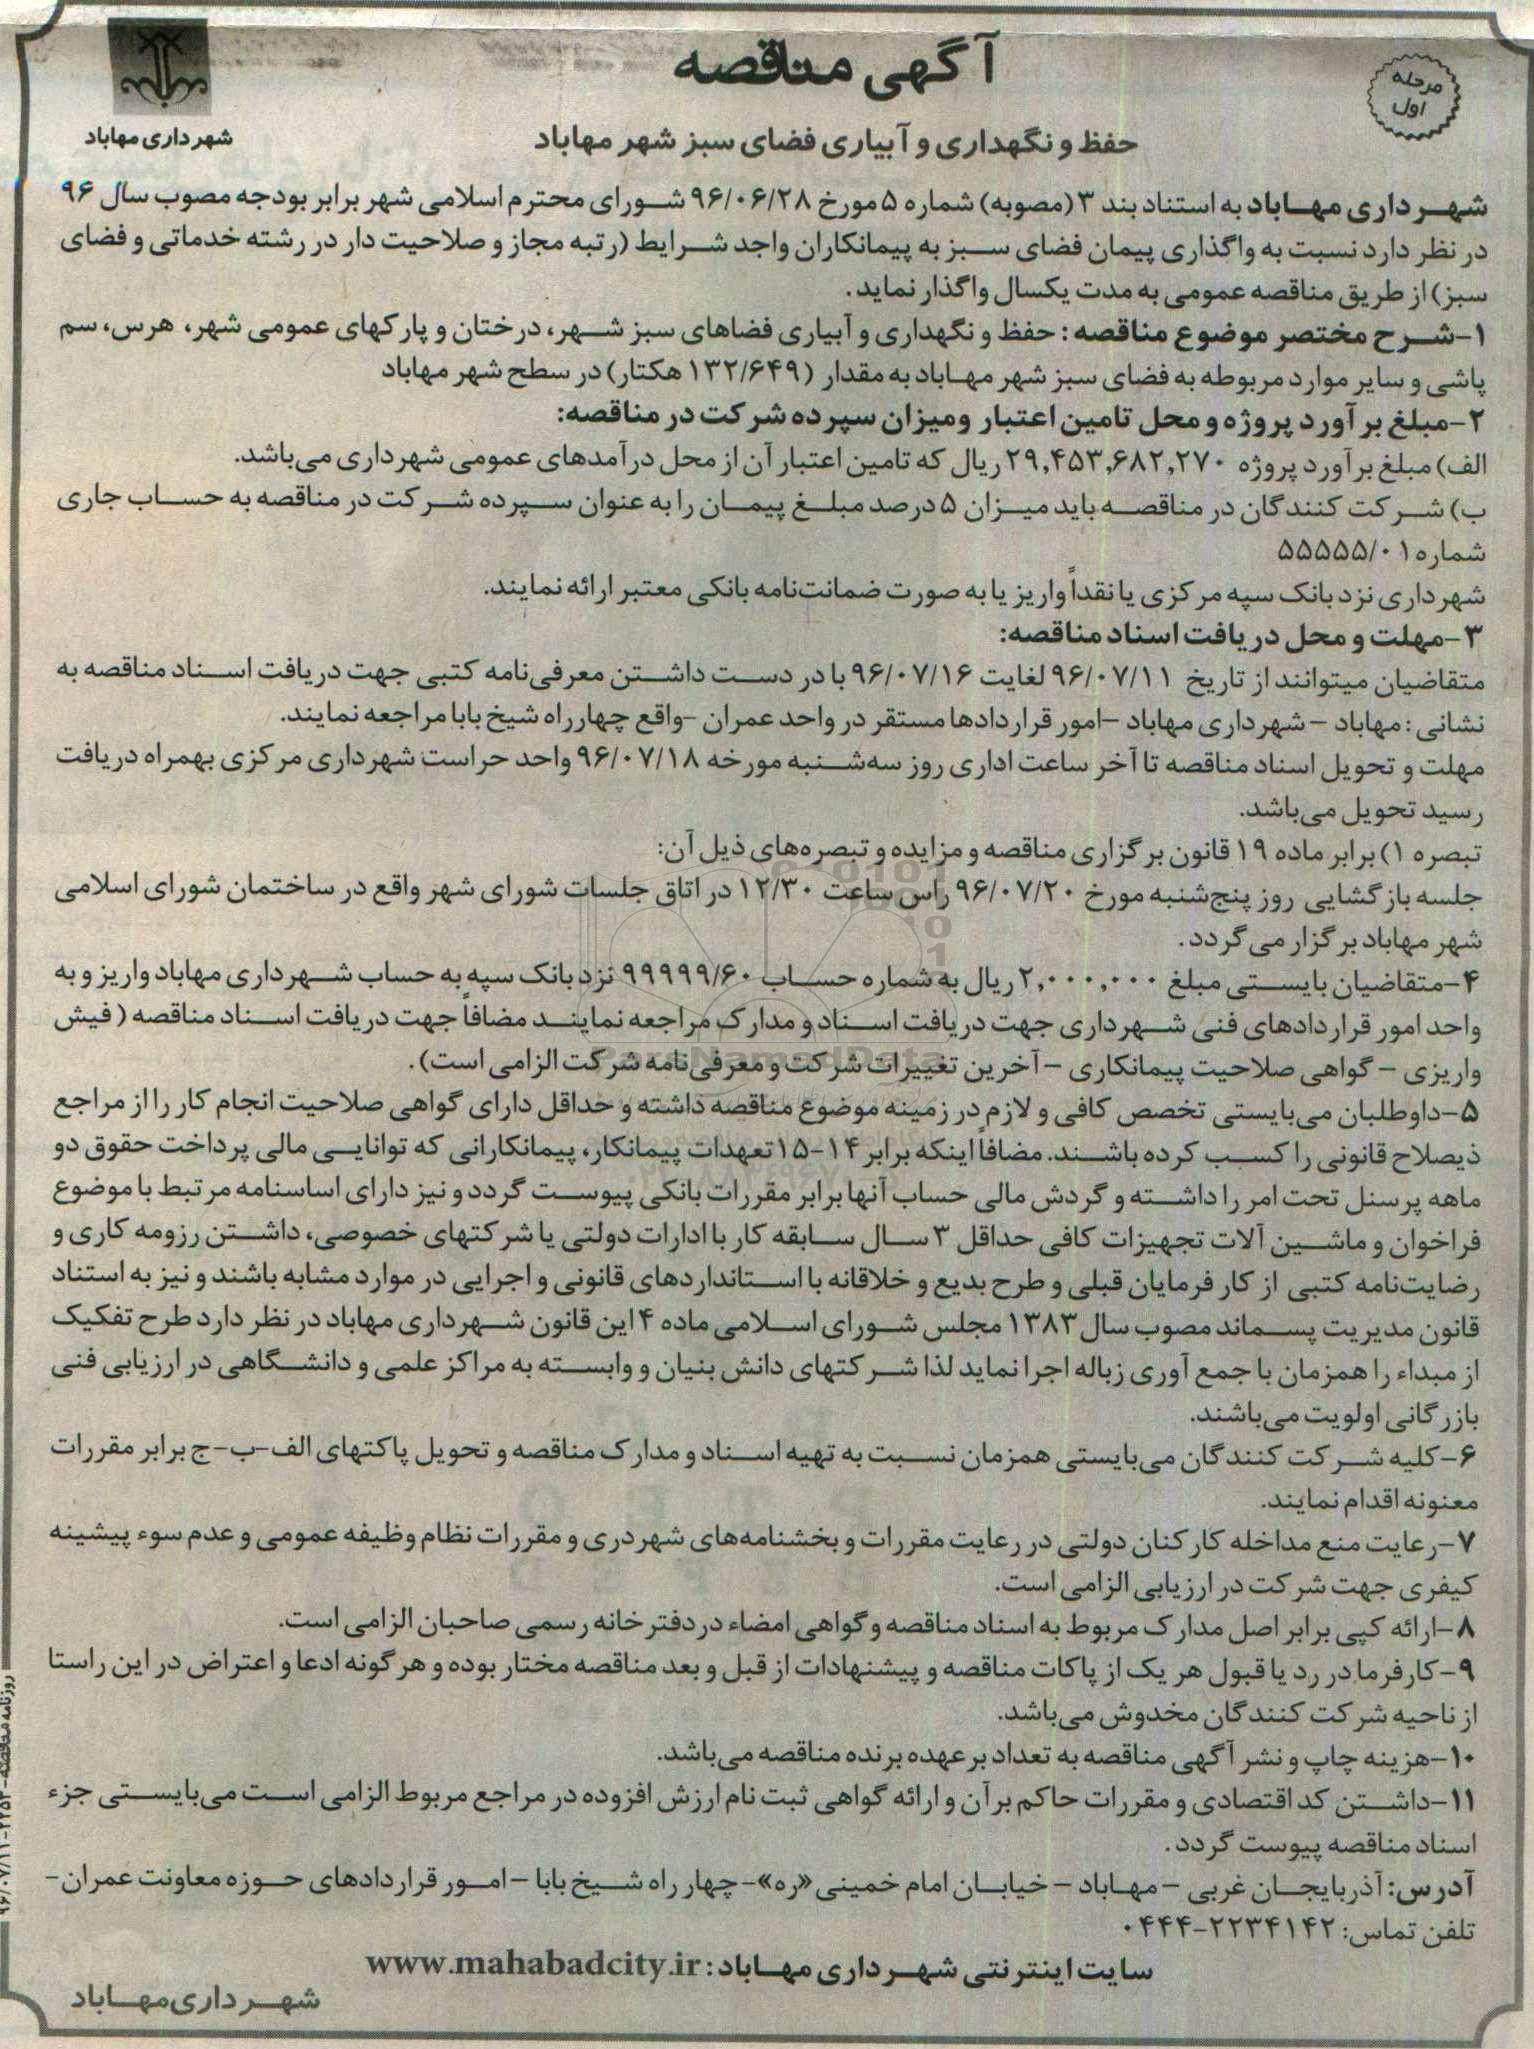 مرحله
اول
آگهی مناقصه
شهرداری مهاباد
حفظ و نگهداری و آبیاری فضای سبز شهر مهاباد
شهرداری مهاباد به استناد بند ۳ (مصوبه) شماره ۵ مورخ ۹۶/۰۶/۲۸ شورای محترم اسلامی شهر برابر بودجه مصوب سال ۹۶
در نظر دارد نسبت به واگذاری پیمان فضای سبز به پیمانکاران واجد شرایط (رتبه مجاز و صلاحیت دار در رشته خدماتی و فضای
سبز) از طریق مناقصه عمومی به مدت یکسال واگذار نماید.
۱-شرح مختصر موضوع مناقصه: حفظ و نگهداری و آبیاری فضاهای سبز شهر، درختان و پارکهای عمومی شهر، هرس، سم
پاشی و سایر موارد مربوطه به فضای سبز شهر مهاباد به مقدار (۱۳۲/۶۴۹ هکتار) در سطح شهر مهاباد
۲-مبلغ برآورد پروژه و محل تامین اعتبار ومیزان سپرده شرکت در مناقصه:
الف) مبلغ برآورد پروژه ۲۹,۴۵۳,۶۸۲,۲۷۰ ریال که تامین اعتبار آن از محل درآمدهای عمومی شهرداری می‌باشد.
ب) شرکت کنندگان در مناقصه باید میزان ۵ درصد مبلغ پیمان را به عنوان سپرده شرکت در مناقصه به حساب جاری
شماره ۵۵۵۵۵/۰۱
شهرداری نزد بانک سپه مرکزی یا نقداً واریز یا به صورت ضمانت‌نامه بانکی معتبر ارائه نمایند.
۳-مهلت و محل دریافت اسناد مناقصه:
متقاضیان میتوانند از تاریخ ۹۶/۰۷/۱۱ لغایت ۹۶/۰۷/۱۶ با در دست داشتن معرفی‌نامه کتبی جهت دریافت اسناد مناقصه به
نشانی: مهاباد – شهرداری مهاباد –امور قراردادها مستقر در واحد عمران –واقع چهارراه شیخ بابا مراجعه نمایند.
مهلت و تحویل اسناد مناقصه تا آخر ساعت اداری روز سه‌شنبه مورخه ۹۶/۰۷/۱۸ واحد حراست شهرداری مرکزی بهمراه دریافت
رسید تحویل می‌باشد.
تبصره ۱) برابر ماده ۱۹ قانون برگزاری مناقصه و مزایده و تبصره‌های ذیل آن:
جلسه بازگشایی روز پنج‌شنبه مورخ ۹۶/۰۷/۲۰ راس ساعت ۱۲/۳۰ در اتاق جلسات شورای شهر واقع در ساختمان شورای اسلامی
شهر مهاباد برگزار می گردد.
۴-متقاضیان بایستی مبلغ ۲,۰۰۰,۰۰۰ ریال به شماره حساب ۹۹۹۹۹/۶۰ نزد بانک سپه به حساب شهرداری مهاباد واریز و به
واحد امور قراردادهای فنی شهرداری جهت دریافت اسناد و مدارک مراجعه نمایند مضافاً جهت دریافت اسناد مناقصه (فیش
واریزی – گواهی صلاحیت پیمانکاری –آخرین تغییرات شرکت و معرفی‌نامه شرکت الزامی است).
۵-داوطلبان می‌بایستی تخصص کافی و لازم در زمینه موضوع مناقصه داشته و حداقل دارای گواهی صلاحیت انجام کار را از مراجع
ذیصلاح قانونی را کسب کرده باشند. مضافاً اینکه برابر ۱۴-۱۵ تعهدات پیمانکار، پیمانکارانی که توانایی مالی پرداخت حقوق دو
ماهه پرسنل تحت امر را داشته و گردش مالی حساب آنها برابر مقررات بانکی پیوست گردد و نیز دارای اساسنامه مرتبط با موضوع
فراخوان و ماشین آلات تجهیزات کافی حداقل ۳ سال سابقه کار با ادارات دولتی یا شرکتهای خصوصی، داشتن رزومه کاری و
رضایت‌نامه کتبی از کارفرمایان قبلی و طرح بدیع و خلاقانه با استانداردهای قانونی و اجرایی در موارد مشابه باشند و نیز به استناد
قانون مدیریت پسماند مصوب سال ۱۳۸۳ مجلس شورای اسلامی ماده ۴ این قانون شهرداری مهاباد در نظر دارد طرح تفکیک
از مبداء را همزمان با جمع آوری زباله اجرا نماید لذا شرکتهای دانش بنیان و وابسته به مراکز علمی و دانشگاهی در ارزیابی فنی
بازرگانی اولویت می‌باشند.
۶-کلیه شرکت کنندگان می‌بایستی همزمان نسبت به تهیه اسناد و مدارک مناقصه و تحویل پاکتهای الف-ب-ج برابر مقررات
معنونه اقدام نمایند.
۷-رعایت منع مداخله کارکنان دولتی در رعایت مقررات و بخشنامه‌های شهردری و مقررات نظام وظیفه عمومی و عدم سوء پیشینه
کیفری جهت شرکت در ارزیابی الزامی است.
۸-ارائه کپی برابر اصل مدارک مربوط به اسناد مناقصه و گواهی امضاء در دفترخانه رسمی صاحبان الزامی است.
۹-کارفرما در رد یا قبول هر یک از پاکات مناقصه و پیشنهادات از قبل و بعد مناقصه مختار بوده و هرگونه ادعا و اعتراض در این راستا
از ناحیه شرکت کنندگان مخدوش می‌باشد.
۱۰-هزینه چاپ و نشر آگهی مناقصه به تعداد بر عهده برنده مناقصه می‌باشد.
۱۱-داشتن کد اقتصادی و مقررات حاکم بر آن و ارائه گواهی ثبت نام ارزش افزوده در مراجع مربوط الزامی است می‌بایستی جزء
اسناد مناقصه پیوست گردد.
آدرس: آذربایجان غربی – مهاباد – خیابان امام خمینی «ره»-چهار راه شیخ بابا – امور قراردادهای حوزه معاونت عمران-
تلفن تماس: ۲۲۳۴۱۴۲-۰۴۴۴
سایت اینترنتی شهرداری مهاباد: www.mahabadcity.ir
شهرداری مهاباد
ParsNamadData